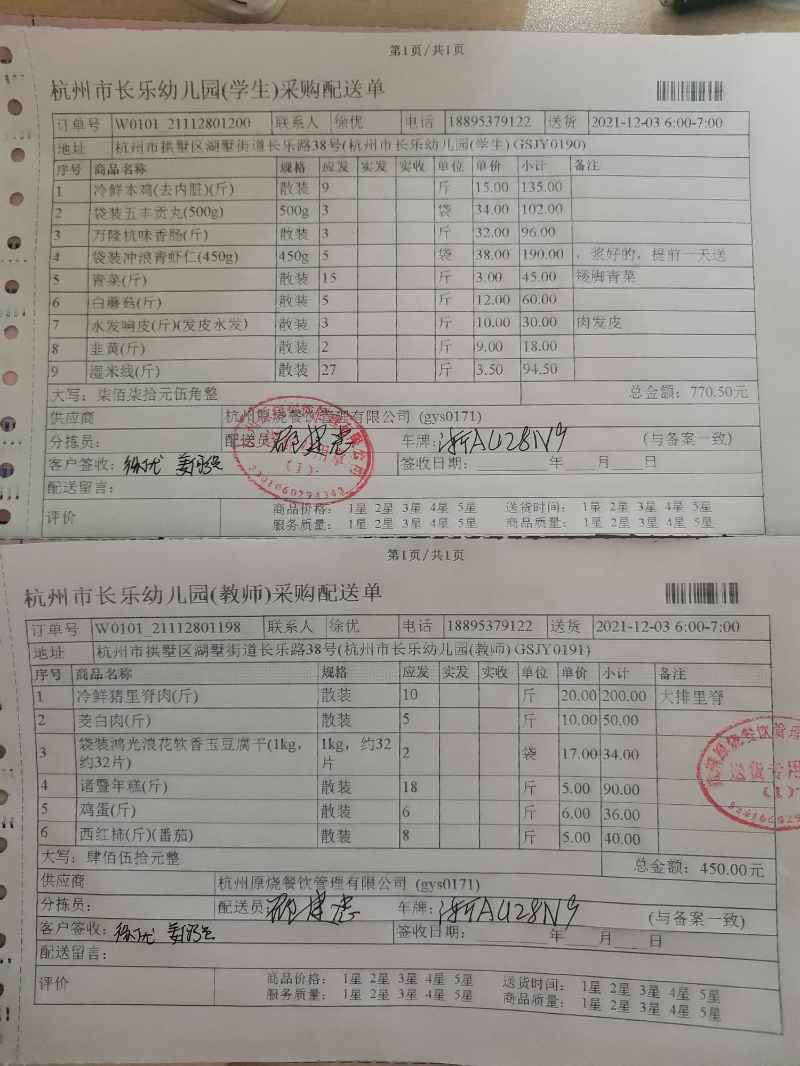 第1页/共1页
杭州市长乐幼儿园(学生)采购配送单
订单号 W0101_21112801200 联系人 徐优 电话 18895379122 送货 2021-12-03 6:00-7:00
地址 杭州市拱墅区湖墅街道长乐路38号(杭州市长乐幼儿园(学生) GSJY0190)
序号 商品名称 规格 应发 实发 实收 单位 单价 小计 备注
1 冷鲜本鸡(去内脏)(斤) 散装 9 斤 15.00 135.00
2 袋装五丰贡丸(500g) 500g 3 袋 34.00 102.00
3 万隆杭味香肠(斤) 散装 3 斤 32.00 96.00
4 袋装冲浪青虾仁(450g) 450g 5 袋 38.00 190.00 ，浆好的，提前一天送
5 青菜(斤) 散装 15 斤 3.00 45.00 矮脚青菜
6 白蘑菇(斤) 散装 5 斤 12.00 60.00
7 水发响皮(斤)(发皮水发) 散装 3 斤 10.00 30.00 肉发皮
8 韭黄(斤) 散装 2 斤 9.00 18.00
9 湿米线(斤) 散装 27 斤 3.50 94.50
大写：柒佰柒拾元伍角整 总金额：770.50元
供应商 杭州原烧餐饮管理有限公司 (gys0171)
分拣员： 配送员 车牌：浙AU28N9 (与备案一致)
客户签收：徐优 签收日期：______年___月___日
(1)
3301060294343
配送留言：
评价 商品价格： 1星 2星 3星 4星 5星 送货时间： 1星 2星 3星 4星 5星
服务质量： 1星 2星 3星 4星 5星 商品质量： 1星 2星 3星 4星 5星
第1页/共1页
杭州市长乐幼儿园(教师)采购配送单
订单号 W0101_21112801198 联系人 徐优 电话 18895379122 送货 2021-12-03 6:00-7:00
地址 杭州市拱墅区湖墅街道长乐路38号(杭州市长乐幼儿园(教师) GSJY0191)
序号 商品名称 规格 应发 实发 实收 单位 单价 小计 备注
1 冷鲜猪里脊肉(斤) 散装 10 斤 20.00 200.00 大排里脊
2 茭白肉(斤) 散装 5 斤 10.00 50.00
3 袋装鸿光浪花软香玉豆腐干(1kg，约32片) 1kg，约32片 2 袋 17.00 34.00
4 诸暨年糕(斤) 散装 18 斤 5.00 90.00
5 鸡蛋(斤) 散装 6 斤 6.00 36.00
6 西红柿(斤)(番茄) 散装 8 斤 5.00 40.00
杭州原烧餐饮管理
送货专用
(1)
大写：肆佰伍拾元整 总金额：450.00元
供应商 杭州原烧餐饮管理有限公司 (gys0171)
分拣员： 配送员 车牌：浙AU28N9 (与备案一致)
客户签收：徐优 签收日期：______年___月___日
配送留言：
评价 商品价格： 1星 2星 3星 4星 5星 送货时间： 1星 2星 3星 4星 5星
服务质量： 1星 2星 3星 4星 5星 商品质量： 1星 2星 3星 4星 5星